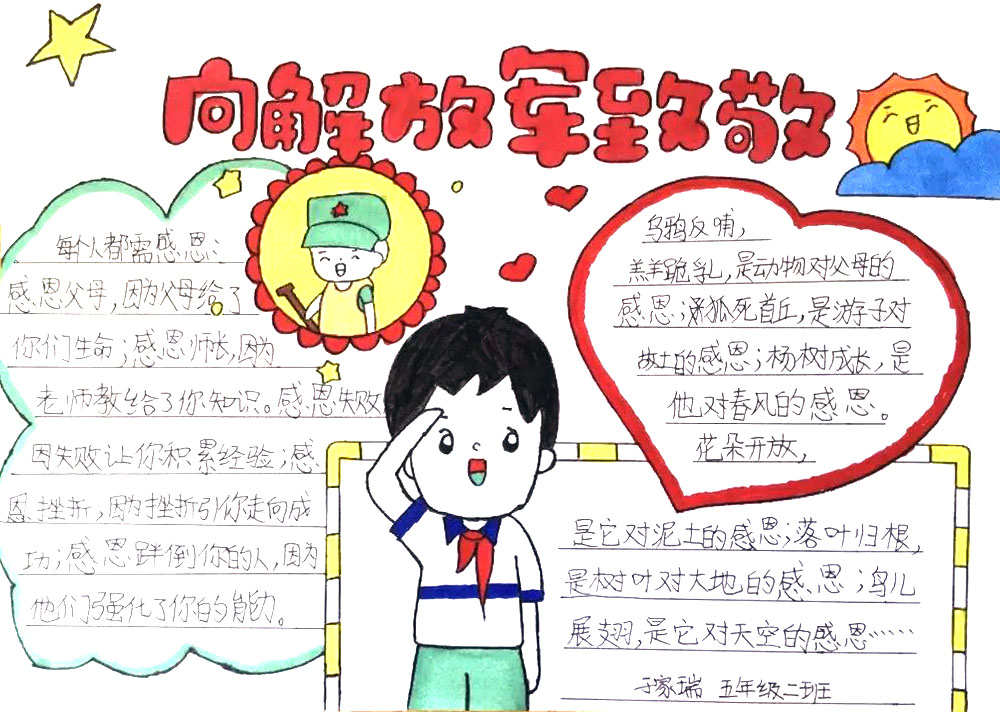 向解放军致敬
每个人都需感恩:
感恩父母,因为父母给了
你们生命;感恩师长,因为
老师教给了你知识。感恩失败
因失败让你积累经验;感
恩挫折,因为挫折引你走向成
功;感恩跘倒你的人,因为
他们强化了你的能力。
乌鸦反哺,
羔羊跪乳,是动物对父母的
感恩;狐死首丘,是游子对
故土的感恩;杨树成长,是
他对春风的感恩。
花朵开放,
是它对泥土的感恩;落叶归根,
是树叶对大地的感恩;鸟儿
展翅,是它对天空的感恩……
于家瑞 五年级二班